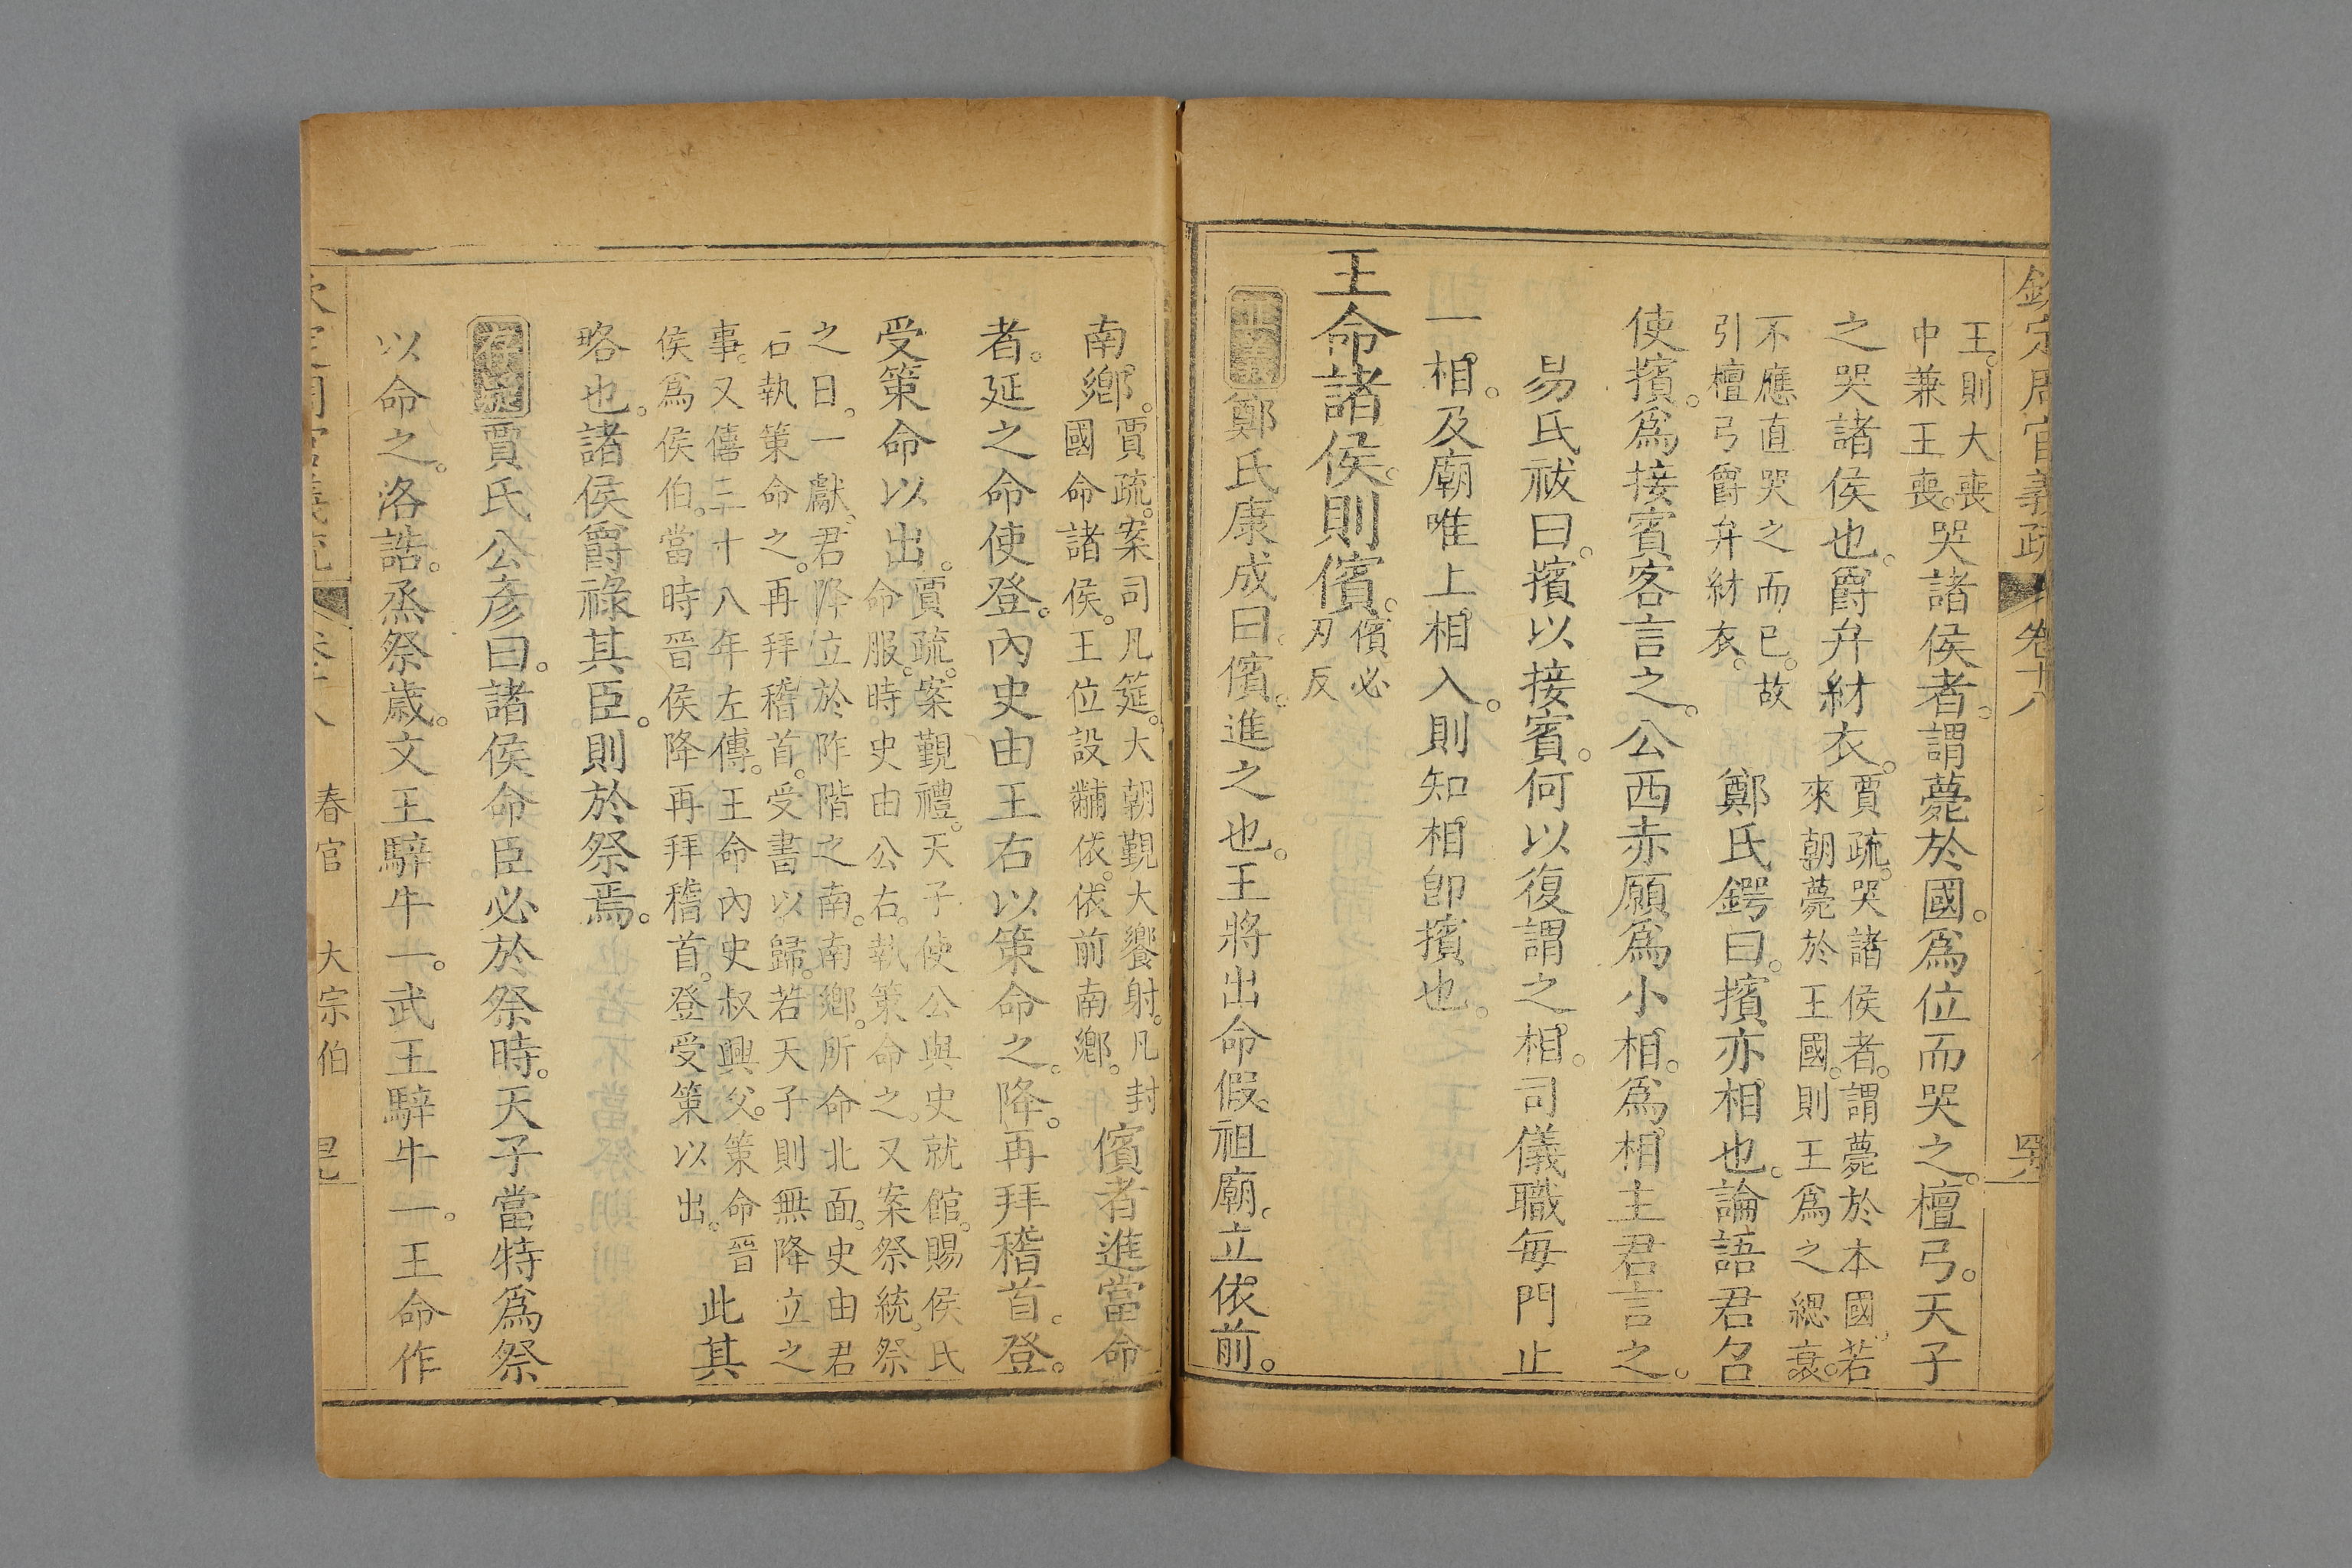 欽定周官義疏 卷十八
王。則大喪中兼王喪。哭諸侯者。謂薨於國。爲位而哭之。檀弓。天子
之哭諸侯也。爵弁紂衣。賈疏。哭諸侯者。謂薨於本國。若來朝薨於王國。則王爲之緦衰。
不應直哭之而已。故引檀弓爵弁紂衣。鄭氏鍔曰。擯亦相也。論語君召
使擯。爲接賓客言之。公西赤願爲小相。爲相主君言之。
易氏祓曰。擯以接賓。何以復謂之相。司儀職每門止
一相。及廟唯上相入。則知相卽擯也。
王命諸侯。則儐。儐必刃反
正義鄭氏康成曰。儐。進之也。王將出命。假祖廟。立依前。
南鄉。賈疏。案司几筵。大朝覲大饗射。凡封國命諸侯。王位設黼依。依前南鄉。儐者進當命
者。延之命使登。內史由王右以策命之。降。再拜稽首。登。
受策命以出。賈疏。案覲禮。天子使公與史就館。賜侯氏命服。時。史由公右。執策命之。又案祭統。祭
之日。一獻。君降立於阼階之南。南鄉。所命北面。史由君右執策命之。再拜稽首。受書以歸。若天子則無降立之
事。又僖二十八年左傳。王命內史叔興父。策命晉侯爲侯伯。當時晉侯降再拜稽首。登受策以出。此其
略也。諸侯爵祿其臣。則於祭焉。
存疑賈氏公彥曰。諸侯命臣。必於祭時。天子當特爲祭
以命之。洛誥。烝祭歲。文王騂牛一。武王騂牛一。王命作
春官 大宗伯